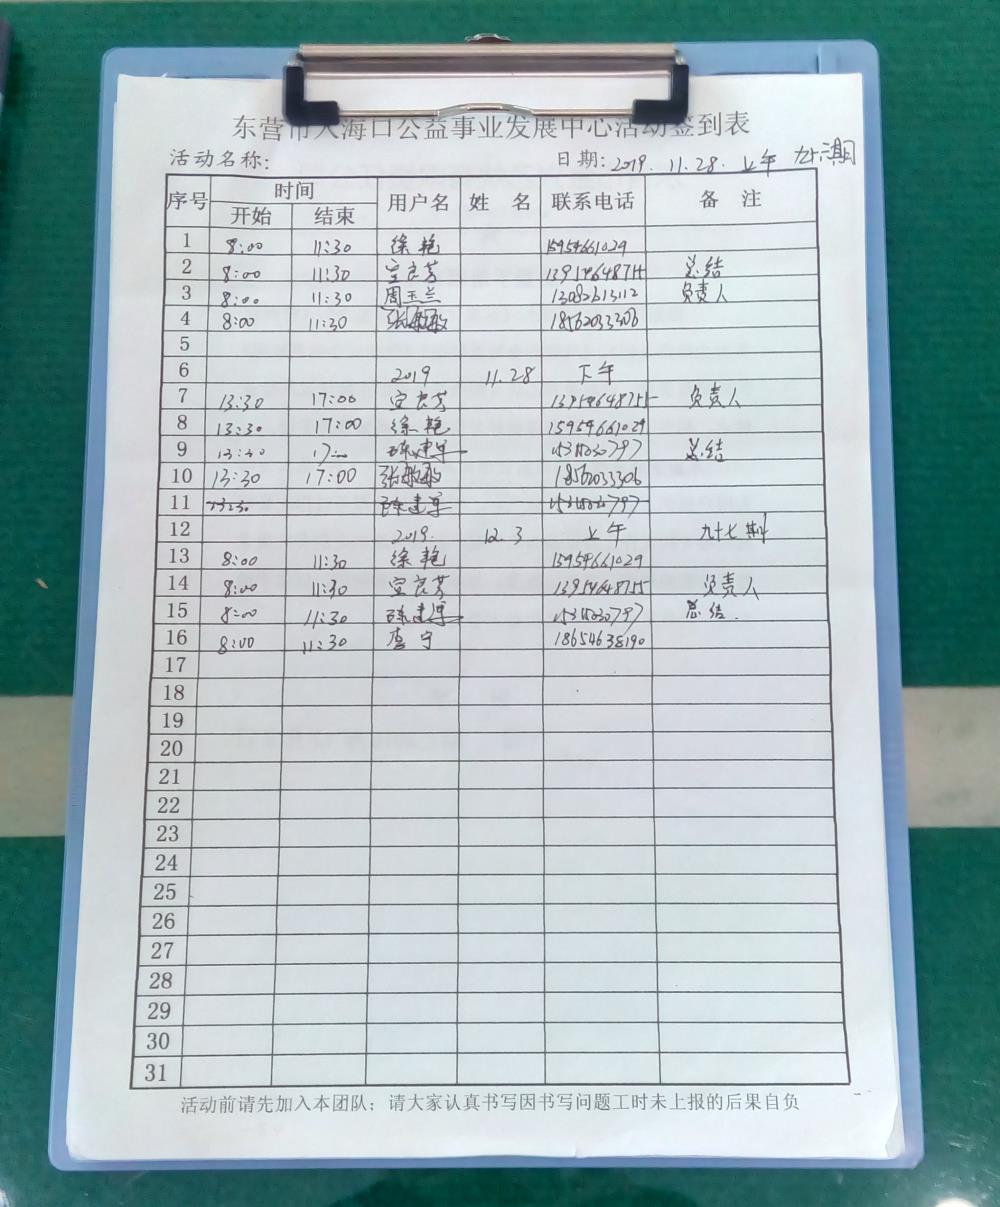 东营市大海口公益事业发展中心活动签到表
活动名称: 日期: 2019. 11.28. 上午 九十六期
序号 时间 用户名 姓 名 联系电话 备 注
开始 结束
1 8:00 11:30 徐艳 15954661029
2 8:00 11:30 宜良芳 13954648755 总结
3 8:00 11:30 周玉兰 13082613112 负责人
4 8:00 11:30 张敏敏 18562033306
5
6 2019 11.28 下午
7 13:30 17:00 宜良芳 13954648755 负责人
8 13:30 17:00 徐艳 15954661029
9 13:30 17:00 陈建军 总结
10 13:30 17:00 张敏敏 18562033306
11 13:30 陈建军
12 2019. 12.3 上午 九十七期
13 8:00 11:30 徐艳 15954661029
14 8:00 11:30 宜良芳 13954648755 负责人
15 8:00 11:30 陈建军 总结.
16 8:00 11:30 李宁 18654638190
17
18
19
20
21
22
23
24
25
26
27
28
29
30
31
活动前请先加入本团队；请大家认真书写因书写问题工时未上报的后果自负